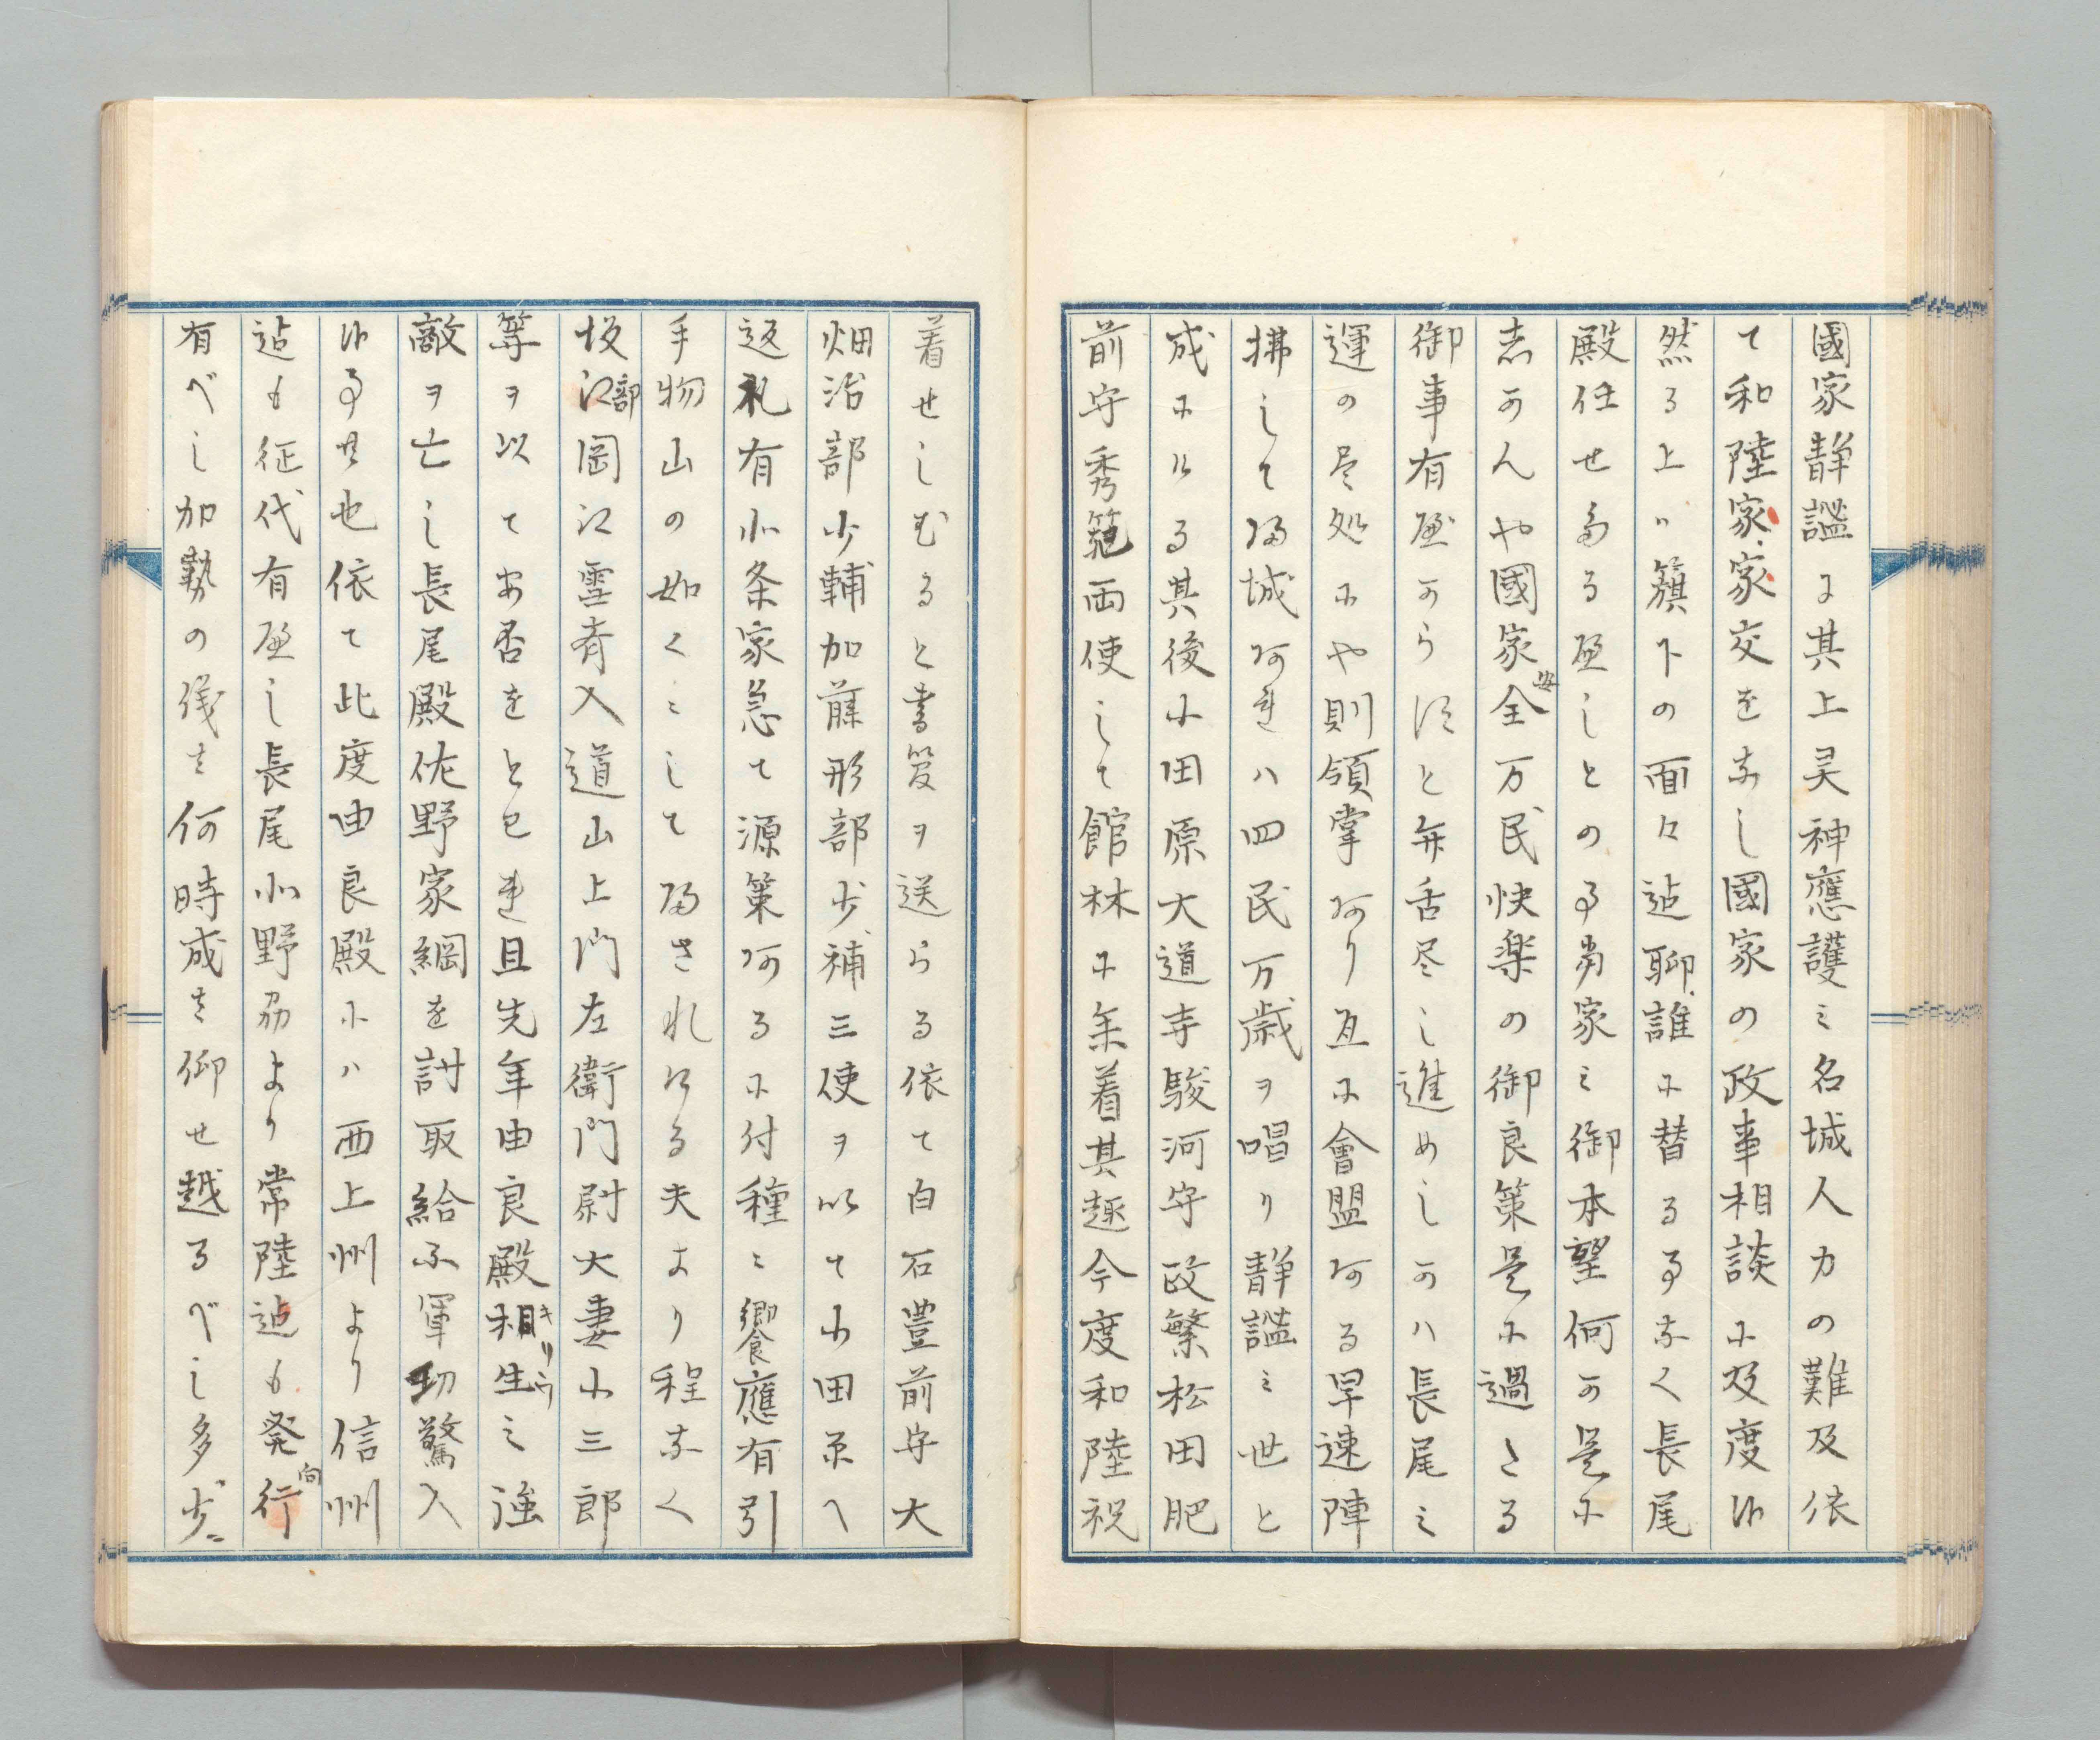 國家静謐に其上灵神應護之名城人力の難及依
て和陸家々家交をなし國家の政事相談に及度候
然る上ハ籏下の面々迠聊誰に替る事なく長尾
殿任せたる歴しとの事當家之御本望何か是に
志かんや國家安全万民快楽の御良策是に過たる
御事有歴からすと弁舌尽し進めしかハ長尾之
運の尽処にや則領掌阿り互に會盟阿る早速陣
拂して帰城阿れハ四民万歳ヲ唱り静謐之世と
成にける其後小田原大道寺駿河守政繁松田肥
前守秀範両使して館林に来着其趣今度和陸祝
着せしむると書翰ヲ送らる依て白石豊前守大
畑治部少輔加藤形部少補三使ヲ以て小田原へ
返礼有北条家急て源策阿るに付種々饗應有引
手物山の如くにして帰されける夫より程なく
坂部江岡江雪斉入道山上門左衛門尉大妻小三郎
等ヲ以て安否をとむれ且先年由良殿相生キリウ之強
敵ヲ亡し長尾殿佐野家綱を討取給ふ軍功驚入
候事共也依て此度由良殿にハ西上州より信州
迠も征代有歴し長尾北野州より常陸迠も発向行
有べし加勢の儀は何時成は仰せ越るべし多少